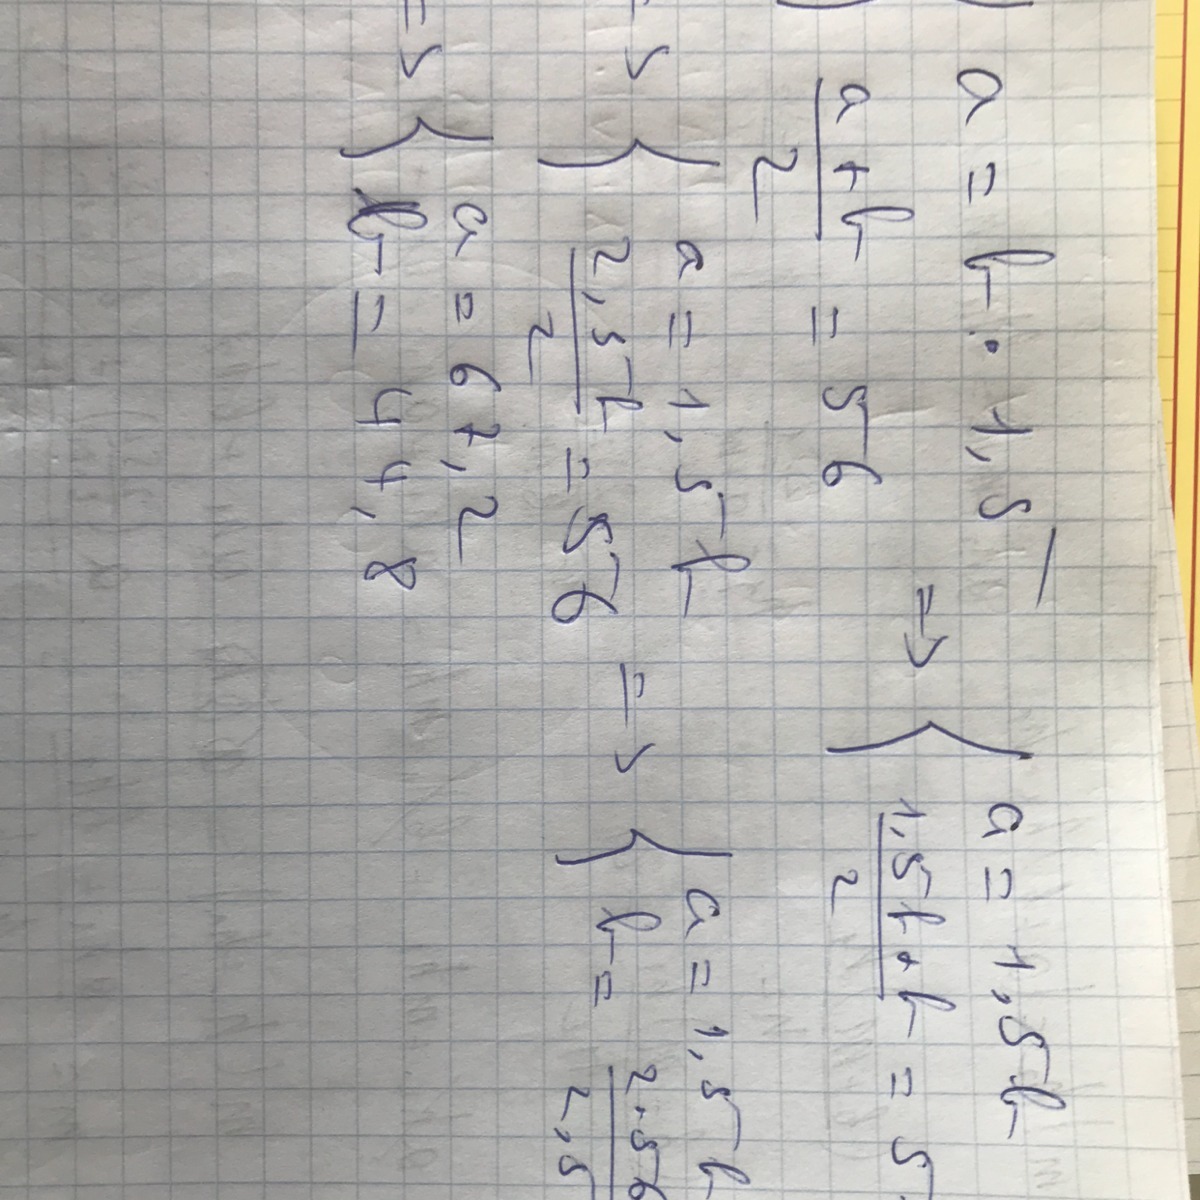 a = b · 1,5
a + b / 2 = 56
=> { a = 1,5b
1,5b + b / 2 = 5
=> { a = 1,5b
2,5b / 2 = 56
=> { a = 1,5b
b = 2·56 / 2,5
=> { a = 67,2
b = 44,8